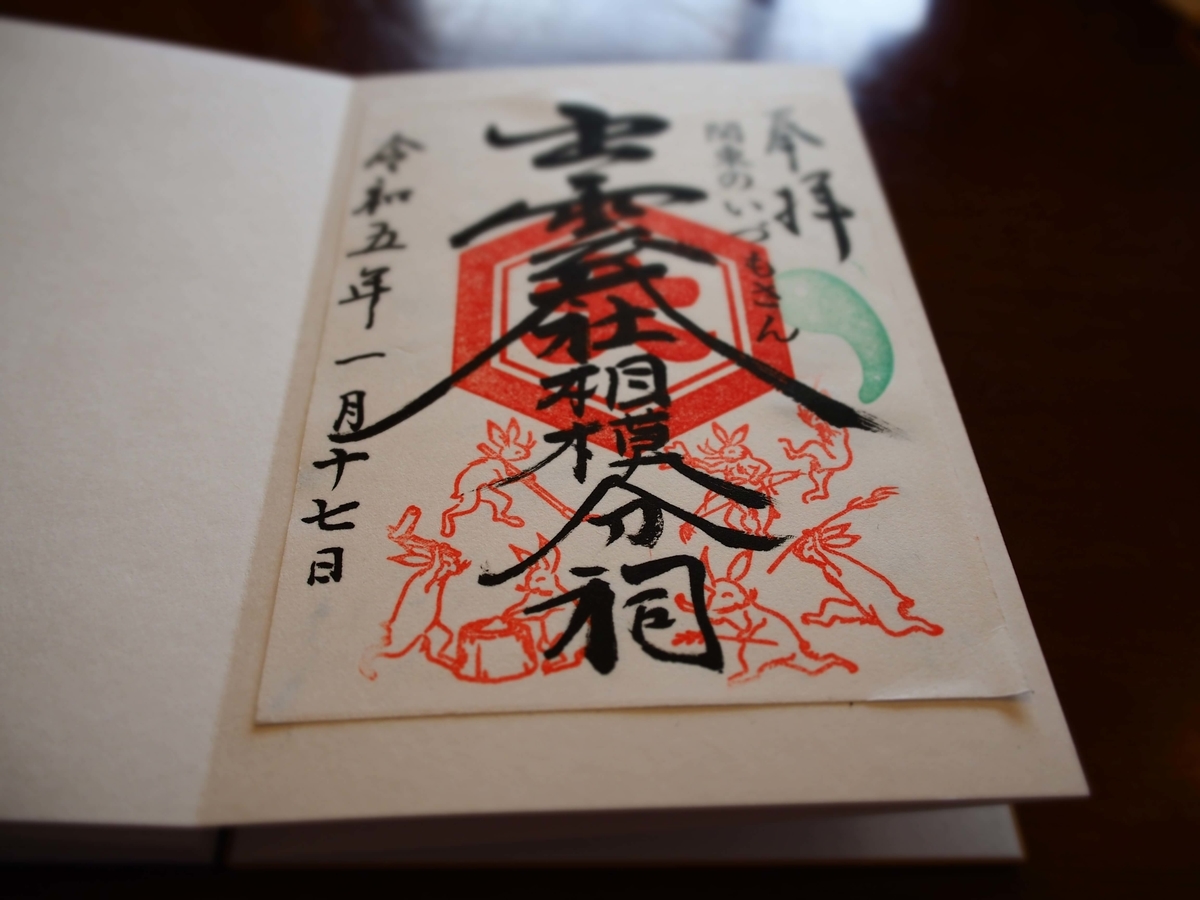 奉拝
関東のいづもさん
出雲大社相模分祠
令和五年一月十七日